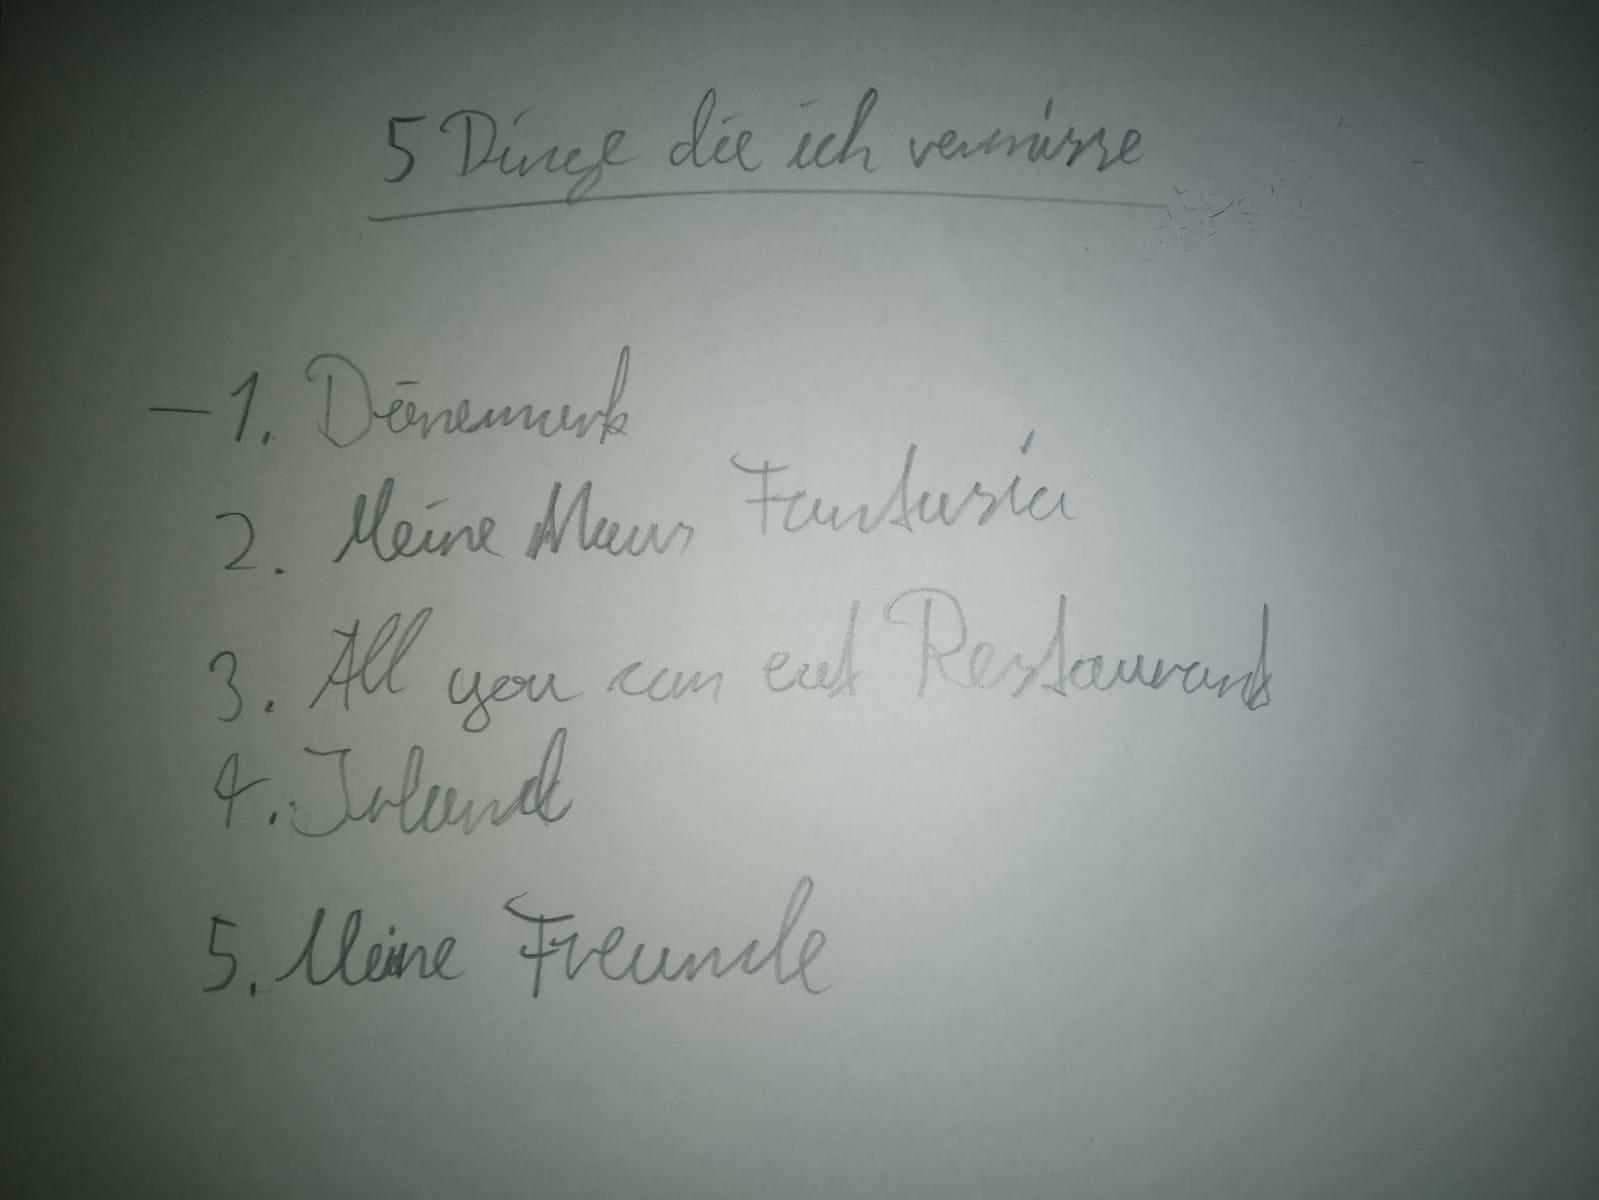 5 Dinge die ich vermisse
- 1. Dänemark
2. Meine Maus Fantasia
3. All you can eat Restaurant
4. Irland
5. Meine Freunde